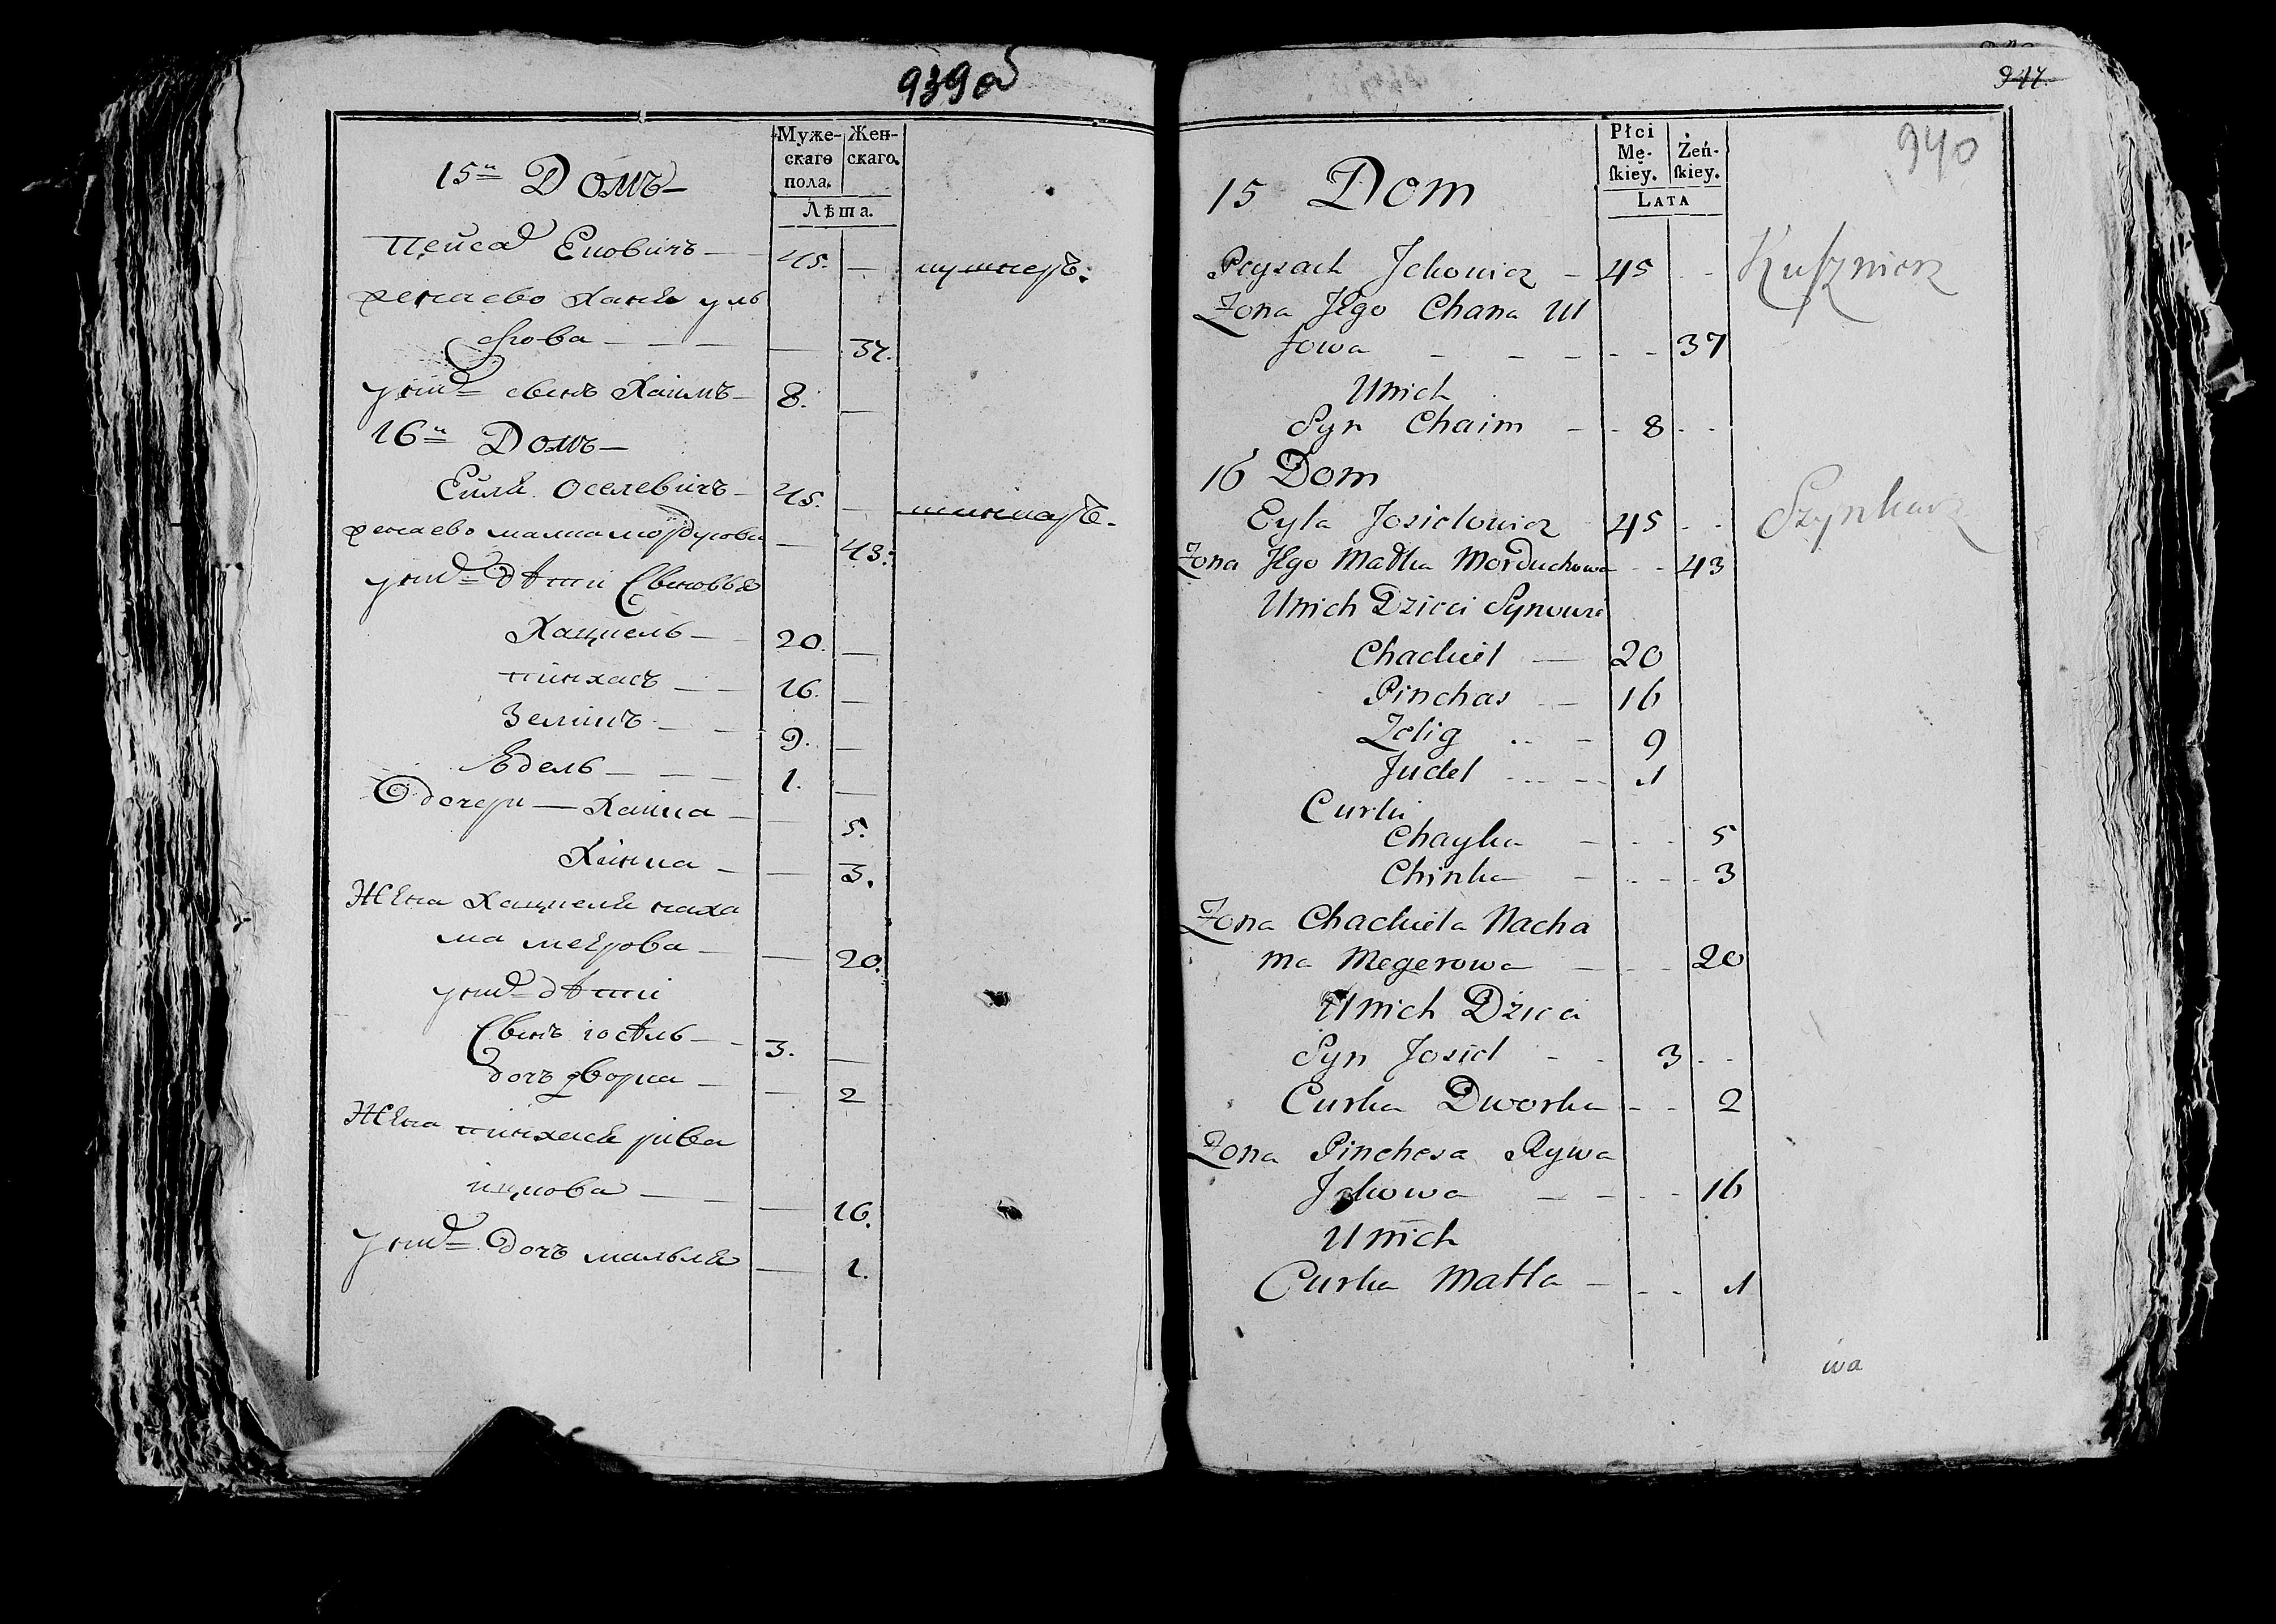 939 об
Муже-
скаго
пола.
Жен-
скаго.
Лѣта.
15й Домъ
Пейсах Ицковичъ 45. кушнеръ.
жена ево Хана Уль
ерова 37.
у них сынъ Хаимъ 8.
16й Домъ
Ейля Оселевичъ 45. шинкаръ.
жена ево Малка Мордухова 43.
у них дѣти сыновья
Хацкель 20.
Пинхасъ 16.
Зелигъ 9.
Юдель 1.
дочери Хаика 5.
Хинка 3.
жена Хацкеля Наха
ма Меерова 20.
у них дѣти
сынъ Іосѣль 3.
дочь Дворка 2
жена Пинхаса Рива
Ицкова 16.
у них дочь Матля 1.
941
940
Płci
Mę-
ſkiey.
Żeń-
ſkiey.
LATA
15 Dom
Peysach Jckowicz 45 Kuſznierz
Zona Jego Chana Ul
Jowa 37
Unich
Syn Chaim 8
16 Dom
Eyla Josielowicz 45 Szynkarz
Zona Jego Malka Morduchowa 43
Unich Dzieci Synowie
Chackiel 20
Pinchas 16
Zelig 9
Judel 1
Curki
Chayka 5
Chinka 3
Zona Chackiela Nacha
ma Megerowa 20
Unich Dzieci
Syn Josiel 3
Curka Dworka 2
Zona Pinchesa Rywa
Jckowa 16
Unich
Curka Matla 1
wa